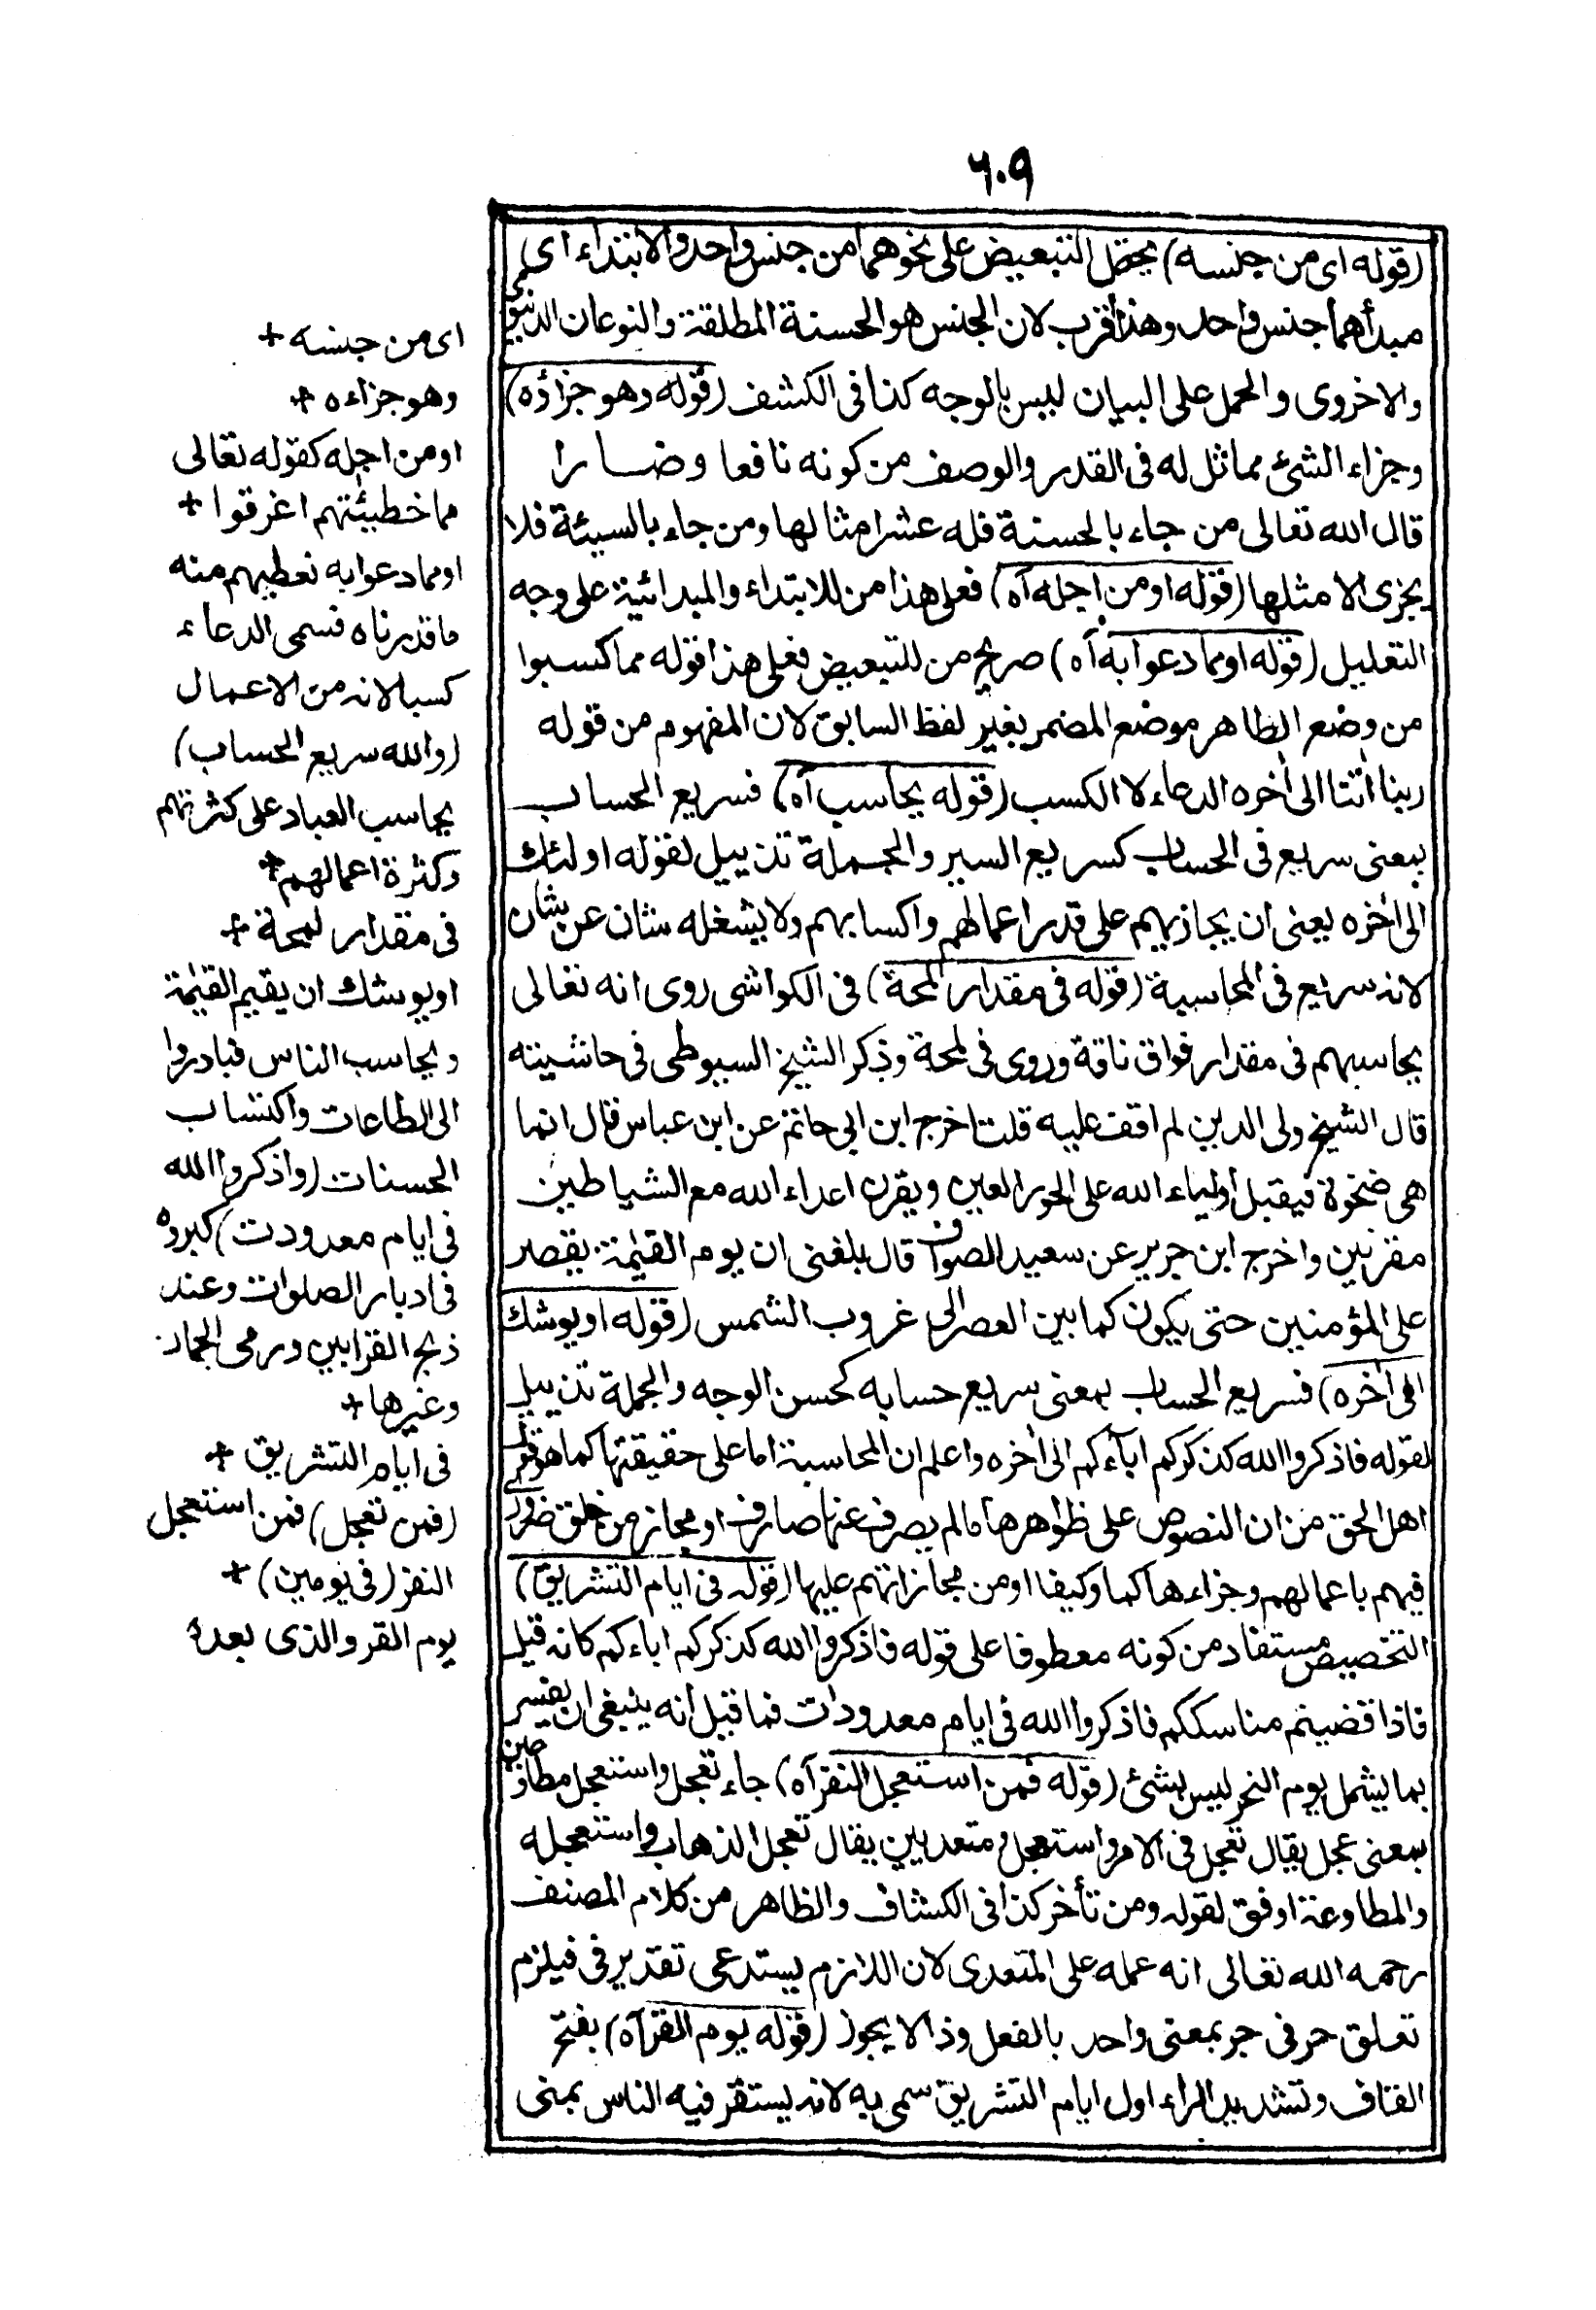 ٦٠٩
(قوله اى من جنسه) يحتمل التبعيض على نحوهما من جنس واحد والابتداء اى
مبدأهما جنس واحد وهذا اقرب لان الجنس هو الحسنة المطلقة والنوعان الدنيوى
والاخروى والحمل على البيان ليس بالوجه كذا فى الكشف (قوله وهو جزاؤه)
وجزاء الشئ مماثل له فى القدر والوصف من كونه نافعا وضارا
قال الله تعالى من جاء بالحسنة فله عشر امثالها ومن جاء بالسيئة فلا
يجزى الا مثلها (قوله او من اجله آه) فعلى هذا من للابتداء والمبدائية على وجه
التعليل (قوله او مما دعوا به آه) صريح من للتبعيض فعلى هذا قوله مما كسبوا
من وضع الظاهر موضع المضمر بغير لفظ السابق لان المفهوم من قوله
ربنا اٰتنا الى اٰخره الدعاء لا الكسب (قوله يحاسب آه) فسريع الحساب
بمعنى سريع فى الحساب كسريع السير والجملة تذييل لقوله اولئك
الى اٰخره يعنى ان يجازيهم على قدر اعمالهم واكسابهم ولا يشغله شان عن شان
لانه سريع فى المحاسبة (قوله فى مقدار لمحة) فى الكواشى روى انه تعالى
يحاسبهم فى مقدار فواق ناقة وروى فى لمحة وذكر الشيخ السيوطى فى حاشيته
قال الشيخ ولى الدين لم اقف عليه قلت اخرج ابن ابى حاتم عن ابن عباس قال انما
هى ضحوة فيقبل اولياء الله على الحور العين ويقرن اعداء الله مع الشياطين
مقرنين واخرج ابن جرير عن سعيد الصواف قال بلغنى ان يوم القيٰمة يقصر
على المؤمنين حتى يكون كما بين العصر الى غروب الشمس (قوله او يوشك
الى اٰخره) فسريع الحساب بمعنى سريع حسابه كحسن الوجه والجملة تذييل
لقوله فاذكروا الله كذكركم اٰباءكم الى اٰخره واعلم ان المحاسبة اما على حقيقتها كما هو قول
اهل الحق من ان النصوص على ظواهرها مالم يصرف عنها صارف او مجاز من خلق ضرورى
فيهم باعمالهم وجزاءها كما وكيفا او من مجازاتهم عليها (قوله فى ايام التشريق)
التخصيص مستفاد من كونه معطوفا على قوله فاذكروا الله كذكركم اباءكم كانه قيل
فاذا قضيتم مناسككم فاذكروا الله فى ايام معدودات فما قيل انه ينبغى ان يفسر
بما يشمل يوم النحر ليس بشئ (قوله فمن استعجل النفر آه) جاء تعجل واستعجل مطاوعين
بمعنى عجل يقال تعجل فى الامر واستعجل ومتعديين يقال تعجل الذهاب واستعجله
والمطاوعة اوفق لقوله ومن تأخر كذا فى الكشاف والظاهر من كلام المصنف
رحمه الله تعالى انه عمله على المتعدى لان اللازم يستدعى تقدير فى فيلزم
تعلق حرفى جر بمعنى واحد بالفعل وذا لا يجوز (قوله يوم القر آه) بفتح
القاف وتشديد الراء اول ايام التشريق سمى به لانه يستقر فيه الناس بمنى
اى من جنسه +
وهو جزاءه +
او من اجله كقوله تعالى
مما خطيئٰتهم اغرقوا +
او مما دعوا به نعطيهم منه
ما قدرناه فسمى الدعاء
كسبا لانه من الاعمال
(والله سريع الحساب)
يحاسب العباد على كثرتهم
وكثرة اعمالهم +
فى مقدار لمحة +
او يوشك ان يقيم القيٰمة
ويحاسب الناس فبادروا
الى الطاعات واكتساب
الحسنات (واذكروا الله
فى ايام معدودت) كبروه
فى ادبار الصلوات وعند
ذبح القرابين ورمى الجمار
وغيرها +
فى ايام التشريق +
(فمن تعجل) فمن استعجل
النفر (فى يومين) +
يوم القر والذى بعده